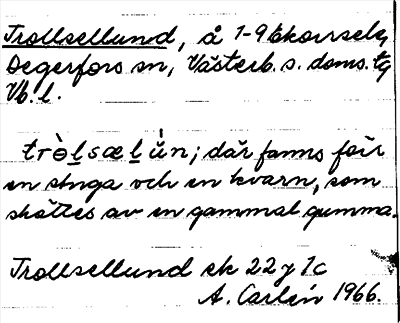 Trollsellund, å 1-9 Ekorrsele,
Degerfors sn, Västerb. s. doms. tg
Vb. l.
tròlsælùn; där fanns förr
en stuga och en kvarn, som
sköttes av en gammal gumma.
Trollsellund ek 22 y 1c
A. Carlén 1966.